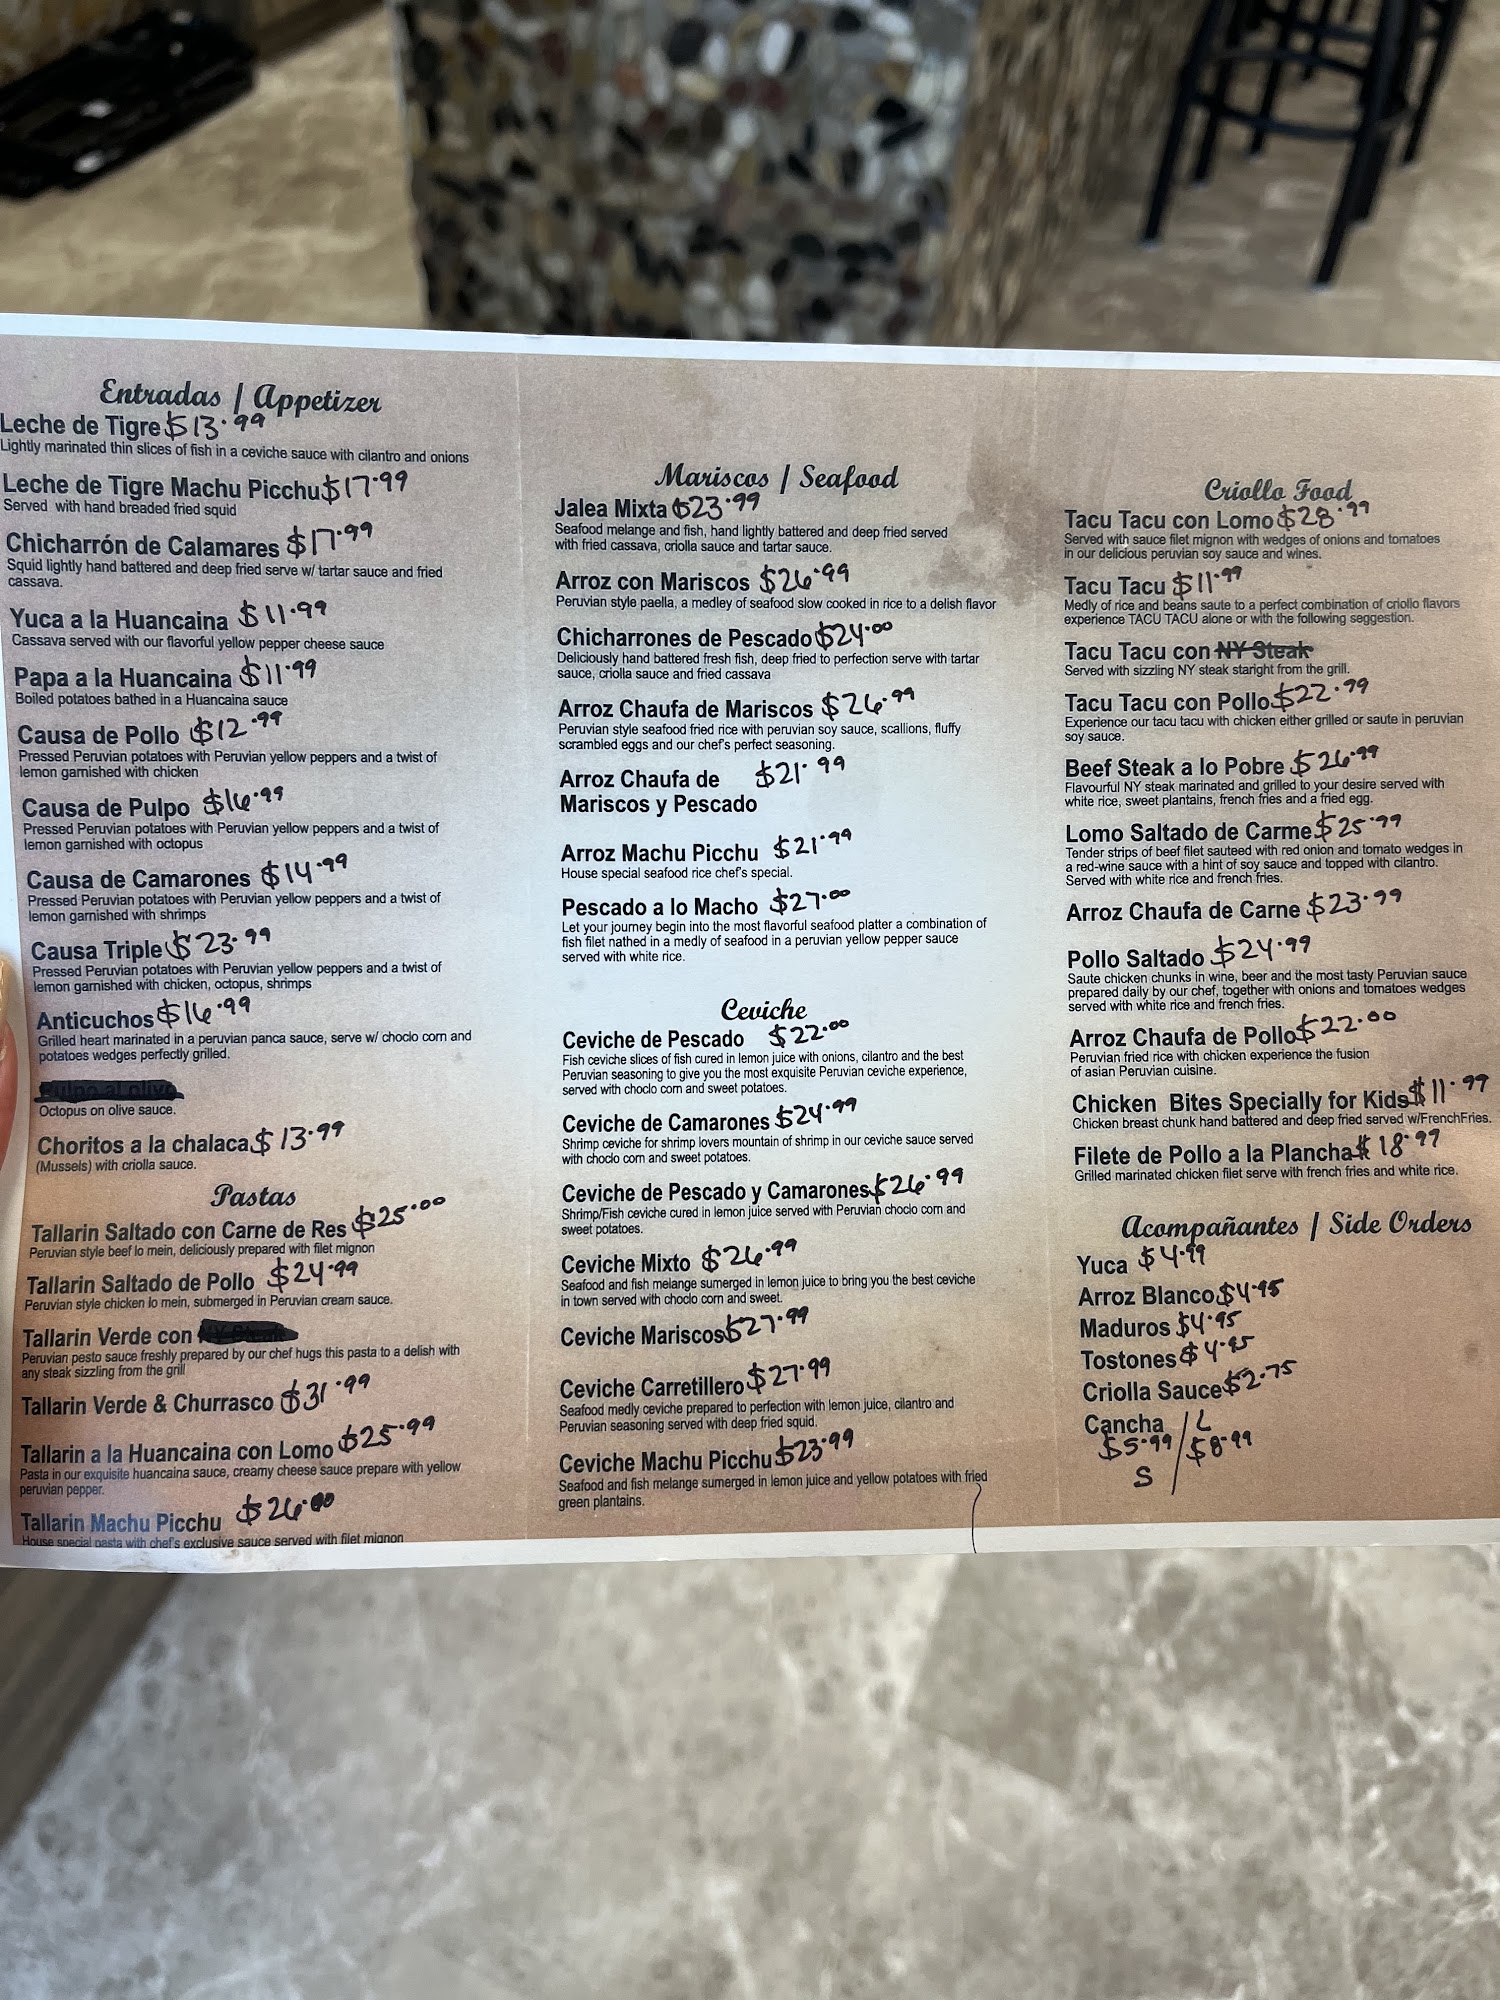 Entradas / Appetizer
Leche de Tigre $13.99
Lightly marinated thin slices of fish in a ceviche sauce with cilantro and onions
Leche de Tigre Machu Picchu $17.99
Served with hand breaded fried squid
Chicharrón de Calamares $17.99
Squid lightly hand battered and deep fried serve w/ tartar sauce and fried
cassava.
Yuca a la Huancaina $11.99
Cassava served with our flavorful yellow pepper cheese sauce
Papa a la Huancaina $11.99
Boiled potatoes bathed in a Huancaina sauce
Causa de Pollo $12.99
Pressed Peruvian potatoes with Peruvian yellow peppers and a twist of
lemon garnished with chicken
Causa de Pulpo $16.99
Pressed Peruvian potatoes with Peruvian yellow peppers and a twist of
lemon garnished with octopus
Causa de Camarones $14.99
Pressed Peruvian potatoes with Peruvian yellow peppers and a twist of
lemon garnished with shrimps
Causa Triple $23.99
Pressed Peruvian potatoes with Peruvian yellow peppers and a twist of
lemon garnished with chicken, octopus, shrimps
Anticuchos $16.99
Grilled heart marinated in a peruvian panca sauce, serve w/ choclo corn and
potatoes wedges perfectly grilled.
Pulpo al olivo
Octopus on olive sauce.
Choritos a la chalaca $13.99
(Mussels) with criolla sauce.
Pastas
Tallarin Saltado con Carne de Res $25.00
Peruvian style beef lo mein, deliciously prepared with filet mignon
Tallarin Saltado de Pollo $24.99
Peruvian style chicken lo mein, submerged in Peruvian cream sauce.
Tallarin Verde con
Peruvian pesto sauce freshly prepared by our chef hugs this pasta to a delish with
any steak sizzling from the grill
Tallarin Verde & Churrasco $31.99
Tallarin a la Huancaina con Lomo $25.99
Pasta in our exquisite huancaina sauce, creamy cheese sauce prepare with yellow
peruvian pepper.
Tallarin Machu Picchu $26.00
House special pasta with chef's exclusive sauce served with filet mignon
Mariscos / Seafood
Jalea Mixta $23.99
Seafood melange and fish, hand lightly battered and deep fried served
with fried cassava, criolla sauce and tartar sauce.
Arroz con Mariscos $26.99
Peruvian style paella, a medley of seafood slow cooked in rice to a delish flavor
Chicharrones de Pescado $24.00
Deliciously hand battered fresh fish, deep fried to perfection serve with tartar
sauce, criolla sauce and fried cassava
Arroz Chaufa de Mariscos $26.99
Peruvian style seafood fried rice with peruvian soy sauce, scallions, fluffy
scrambled eggs and our chef's perfect seasoning.
Arroz Chaufa de $21.99
Mariscos y Pescado
Arroz Machu Picchu $21.99
House special seafood rice chef's special.
Pescado a lo Macho $27.00
Let your journey begin into the most flavorful seafood platter a combination of
fish filet nathed in a medly of seafood in a peruvian yellow pepper sauce
served with white rice.
Ceviche
Ceviche de Pescado $22.00
Fish ceviche slices of fish cured in lemon juice with onions, cilantro and the best
Peruvian seasoning to give you the most exquisite Peruvian ceviche experience,
served with choclo corn and sweet potatoes.
Ceviche de Camarones $24.99
Shrimp ceviche for shrimp lovers mountain of shrimp in our ceviche sauce served
with choclo corn and sweet potatoes.
Ceviche de Pescado y Camarones $26.99
Shrimp/Fish ceviche cured in lemon juice served with Peruvian choclo corn and
sweet potatoes.
Ceviche Mixto $26.99
Seafood and fish melange sumerged in lemon juice to bring you the best ceviche
in town served with choclo corn and sweet.
Ceviche Mariscos $27.99
Ceviche Carretillero $27.99
Seafood medly ceviche prepared to perfection with lemon juice, cilantro and
Peruvian seasoning served with deep fried squid.
Ceviche Machu Picchu $23.99
Seafood and fish melange sumerged in lemon juice and yellow potatoes with fried
green plantains.
Criollo Food
Tacu Tacu con Lomo $28.99
Served with sauce filet mignon with wedges of onions and tomatoes
in our delicious peruvian soy sauce and wines.
Tacu Tacu $11.99
Medly of rice and beans saute to a perfect combination of criollo flavors
experience TACU TACU alone or with the following seggestion.
Tacu Tacu con NY Steak
Served with sizzling NY steak staright from the grill.
Tacu Tacu con Pollo $22.99
Experience our tacu tacu with chicken either grilled or saute in peruvian
soy sauce.
Beef Steak a lo Pobre $26.99
Flavourful NY steak marinated and grilled to your desire served with
white rice, sweet plantains, french fries and a fried egg.
Lomo Saltado de Carme $25.99
Tender strips of beef filet sauteed with red onion and tomato wedges in
a red-wine sauce with a hint of soy sauce and topped with cilantro.
Served with white rice and french fries.
Arroz Chaufa de Carne $23.99
Pollo Saltado $24.99
Saute chicken chunks in wine, beer and the most tasty Peruvian sauce
prepared daily by our chef, together with onions and tomatoes wedges
served with white rice and french fries.
Arroz Chaufa de Pollo $22.00
Peruvian fried rice with chicken experience the fusion
of asian Peruvian cuisine.
Chicken Bites Specially for Kids $11.99
Chicken breast chunk hand battered and deep fried served w/FrenchFries.
Filete de Pollo a la Plancha $18.99
Grilled marinated chicken filet serve with french fries and white rice.
Acompañantes / Side Orders
Yuca $4.99
Arroz Blanco $4.95
Maduros $4.95
Tostones $4.95
Criolla Sauce $2.75
Cancha / L
$5.99 / $8.99
S